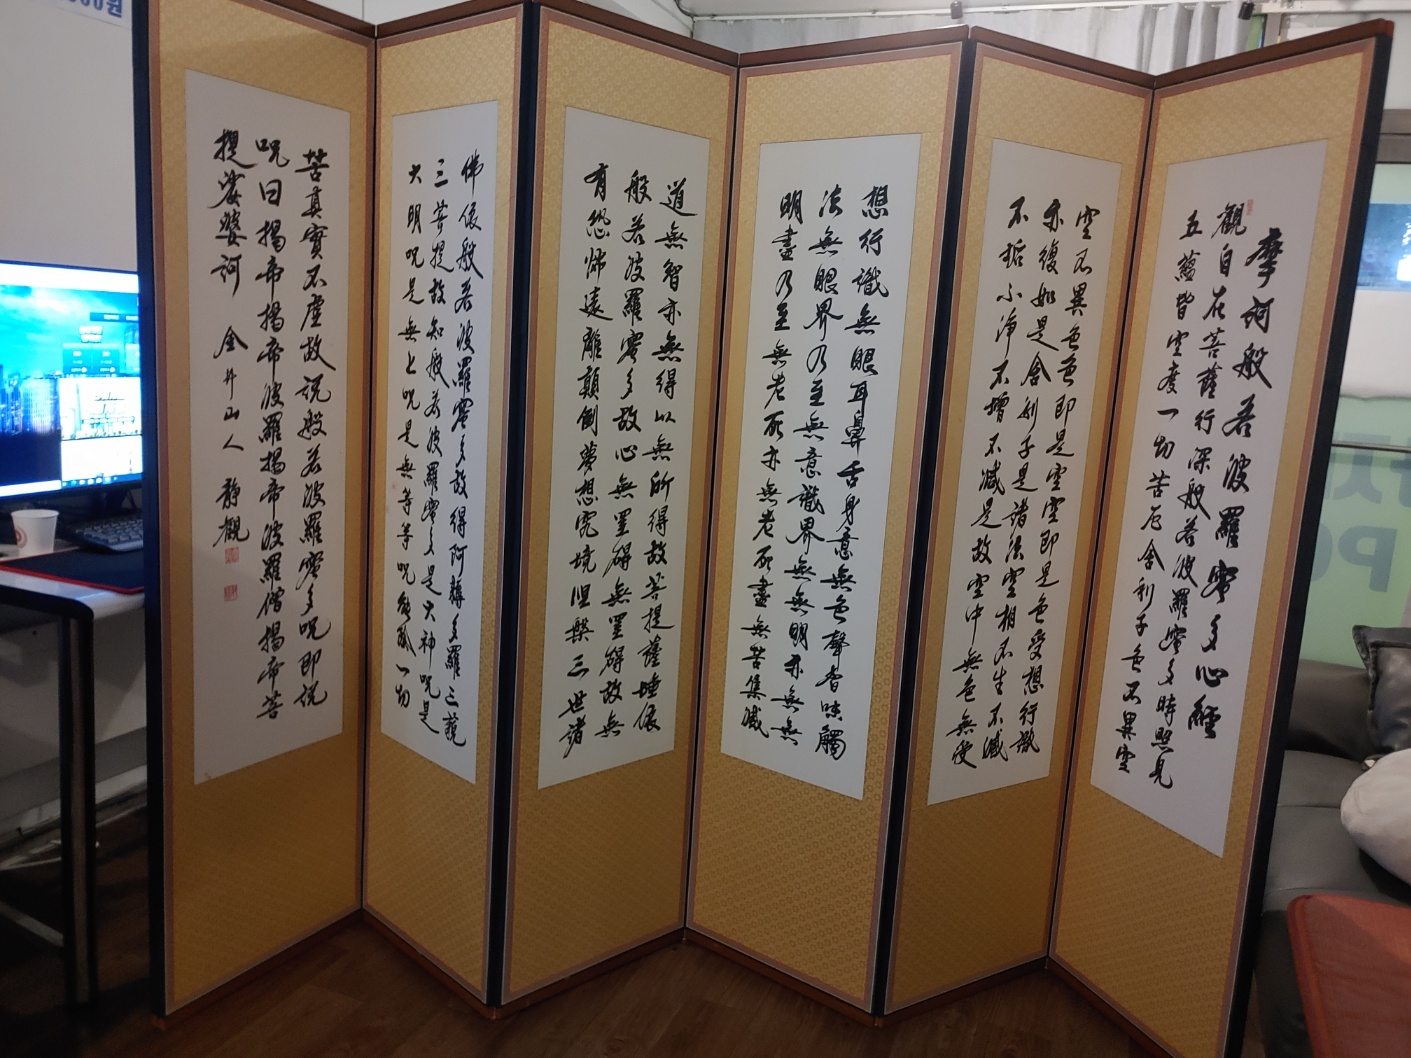 摩訶般若波羅蜜多心經
觀自在菩薩行深般若波羅蜜多時照見
五蘊皆空度一切苦厄舍利子色不異空
空不異色色即是空空即是色受想行識
亦復如是舍利子是諸法空相不生不滅
不垢不淨不增不減是故空中無色無受
想行識無眼耳鼻舌身意無色聲香味觸
法無眼界乃至無意識界無無明亦無無
明盡乃至無老死亦無老死盡無苦集滅
道無智亦無得以無所得故菩提薩埵依
般若波羅蜜多故心無罣碍無罣碍故無
有恐怖遠離顛倒夢想究境涅槃三世諸
佛依般若波羅蜜多故得阿耨多羅三藐
三菩提故知般若波羅蜜多是大神呪是
大明呪是無上呪是無等等呪能除一切
苦真實不虛故説般若波羅蜜多呪即説
呪曰揭帝揭帝波羅揭帝波羅僧揭帝菩
提娑婆訶 金井山人 靜觀
00원